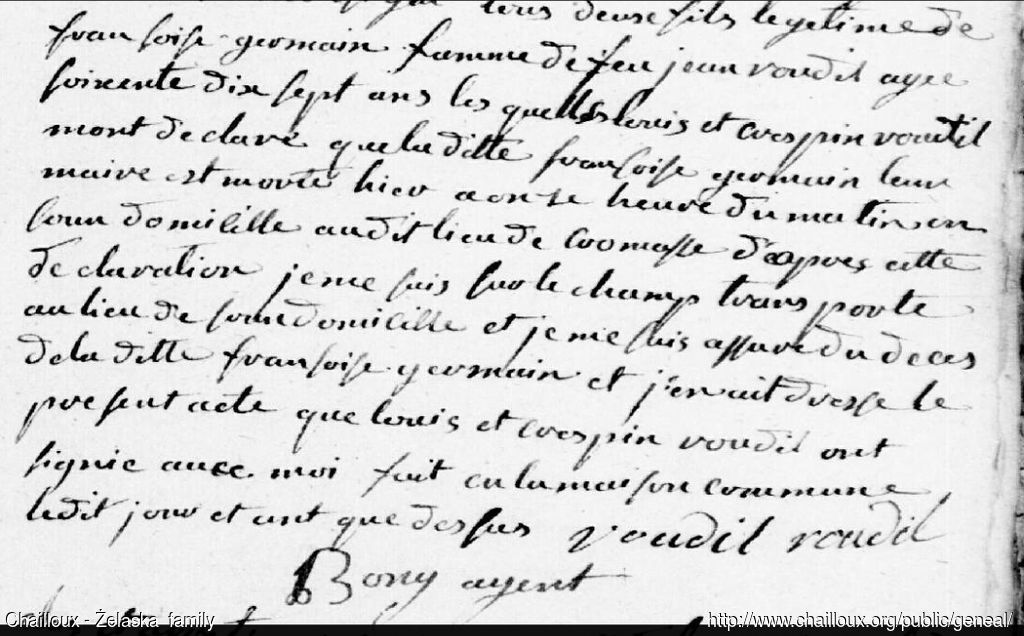 tous deux fils legetime de
fransoise germain famme de feu jean roudil agee
soixente dix sept ans les quells louis et crespin roudil
mont declare que la ditte fransoise germain leur
maire est morte hier a onse heure du matin en
soun domicille au dit lieu de cromasse d'apres cette
declaration je me suis sur le champ transporte
au lieu de soun domicille et je me suis assure du deces
de la ditte fransoise germain et j'en ait dresse le
present acte que louis et crespin roudil ont
signie avec moi fait en la maison commune
ledit jour et ant que dessus roudil roudil
Bony agent
Chailloux - Żelaska family
http://www.chailloux.org/public/geneal/